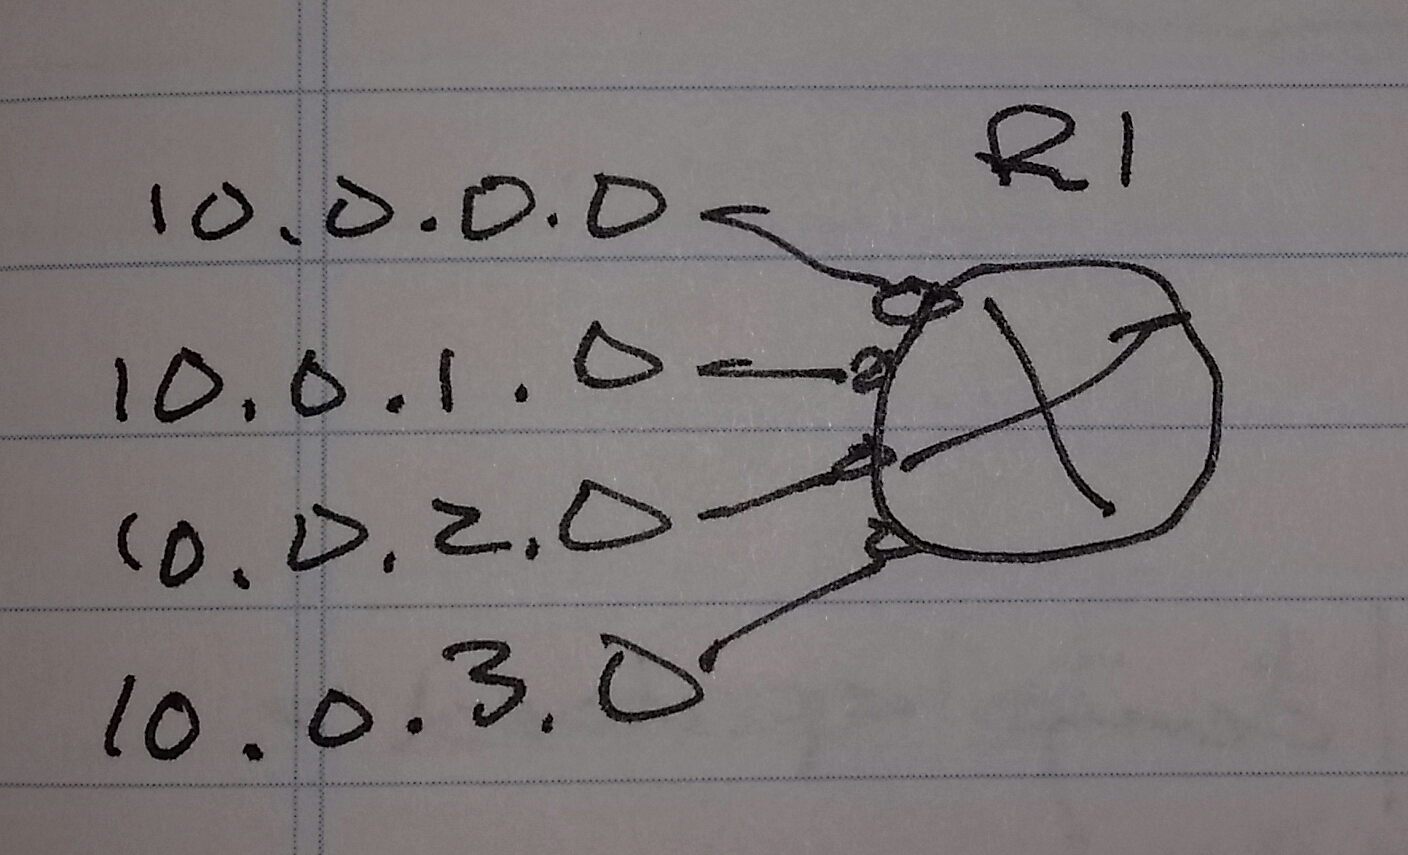 R1
10.0.0.0
10.0.1.0
10.0.2.0
10.0.3.0